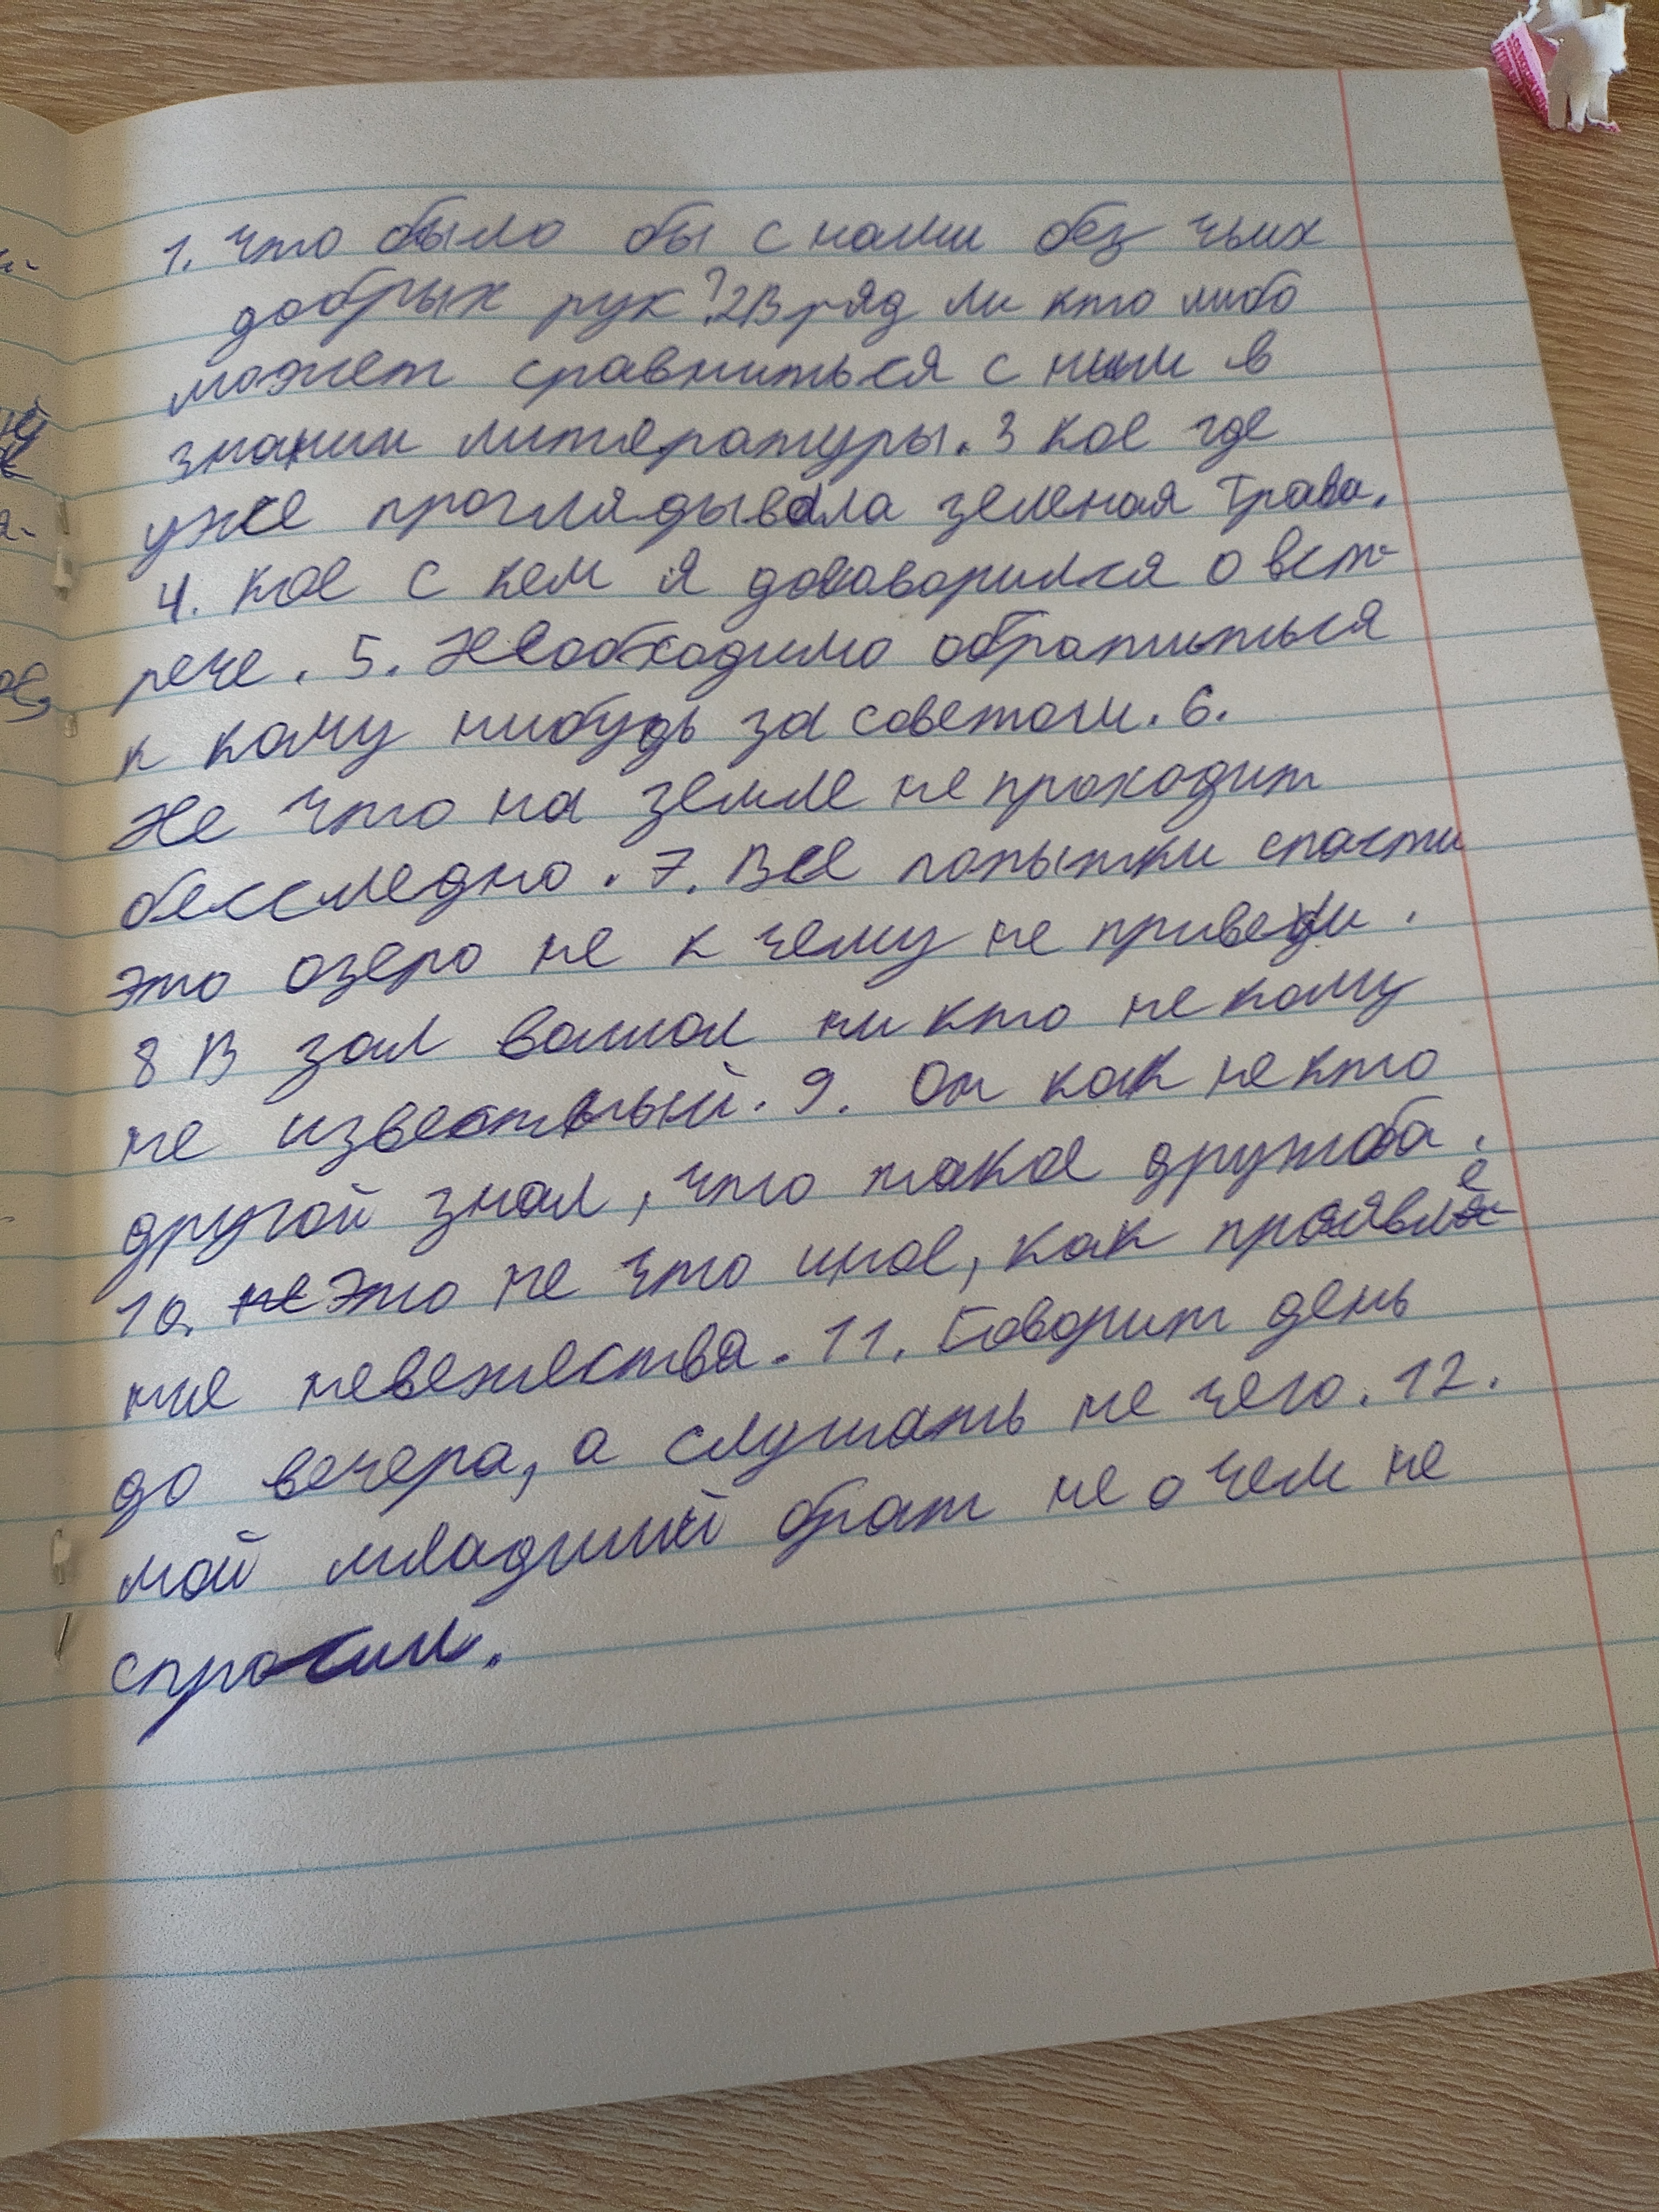 1. Что было бы с нами без чьих
добрых рук? 2 Вряд ли кто либо
может сравниться с ним в
знании литературы. 3 кое где
уже проглядывала зеленая трава.
4. Кое с кем я договорился о вст-
рече. 5. Необходимо обратиться
к кому нибудь за советом. 6.
Не что на земле не проходит
бесследно. 7. Все попытки спасти
это озеро не к чему не привели.
8 В зал вошол ни кто не кому
не известный. 9. Он как не кто
другой знал, что такое дружба.
10. Это не что иное, как проявле
ние невежества. 11. Говорит день
до вечера, а слушать не чего. 12.
мой младший брат не о чем не
спросил.